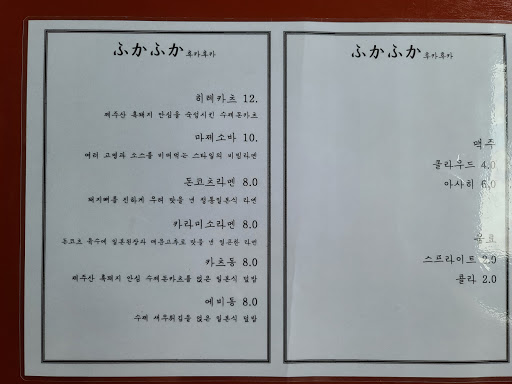 ふかふか 후카후카
히레카츠 12.
제주산 흑돼지 안심을 숙성시킨 수제돈카츠
마제소바 10.
여러 고명과 소스를 비벼먹는 스타일의 비빔라멘
돈코츠라멘 8.0
돼지뼈를 진하게 우려 맛을 낸 정통일본식 라멘
카라미소라멘 8.0
돈코츠 육수에 일본된장과 매운고추로 맛을 낸 얼큰한 라멘
카츠동 8.0
제주산 흑돼지 안심 수제돈카츠를 얹은 일본식 덮밥
에비동 8.0
수제 새우튀김을 얹은 일본식 덮밥
ふかふか 후카후카
맥주
클라우드 4.0
아사히 6.0
음료
스프라이트 2.0
콜라 2.0